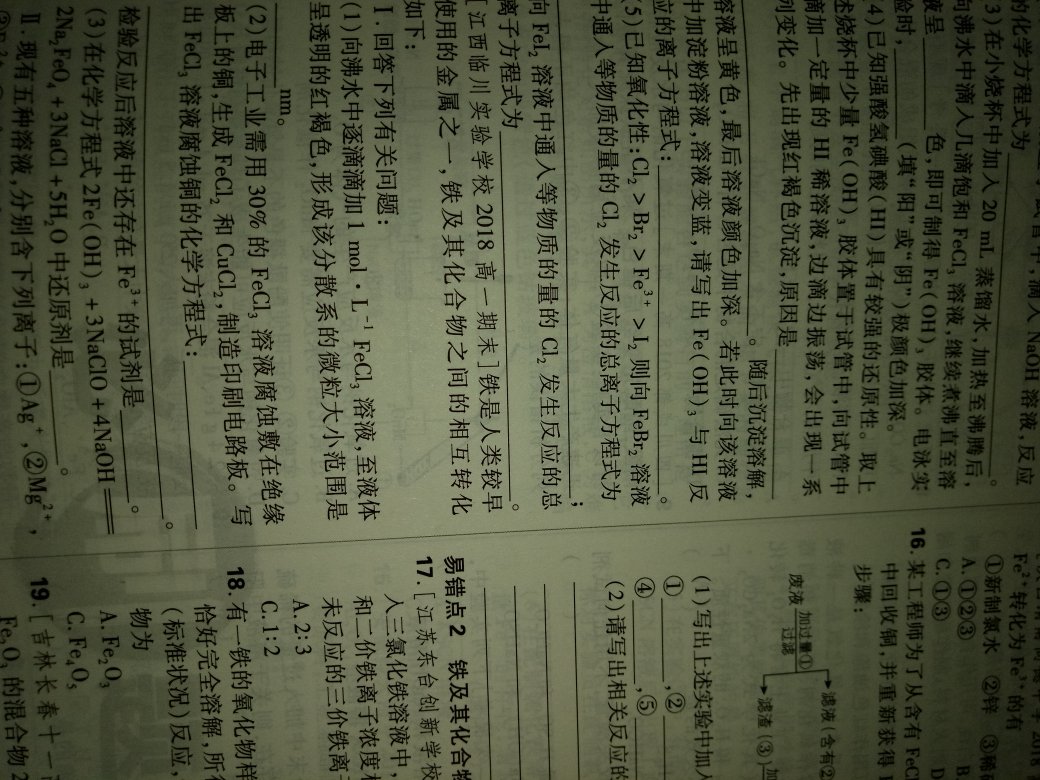 的化学方程式为
(3)在小烧杯中加入 20 mL 蒸馏水,加热至沸腾后,
向沸水中滴入几滴饱和 FeCl₃ 溶液,继续煮沸直至溶
液呈______色,即可制得 Fe(OH)₃ 胶体。电泳实
验时,______(填“阳”或“阴”)极颜色加深。
(4)已知强酸氢碘酸(HI)具有较强的还原性。取上
述烧杯中少量 Fe(OH)₃ 胶体置于试管中,向试管中
滴加一定量的 HI 稀溶液,边滴边振荡,会出现一系
列变化。先出现红褐色沉淀,原因是______
______。随后沉淀溶解,
溶液呈黄色,最后溶液颜色加深。若此时向该溶液
中加淀粉溶液,溶液变蓝,请写出 Fe(OH)₃ 与 HI 反
应的离子方程式:______。
(5)已知氧化性:Cl₂ > Br₂ > Fe³⁺ > I₂ 则向 FeBr₂ 溶液
中通入等物质的量的 Cl₂ 发生反应的总离子方程式为
______;
向 FeI₂ 溶液中通入等物质的量的 Cl₂ 发生反应的总
离子方程式为______。
[江西临川实验学校 2018 高一期末]铁是人类较早
使用的金属之一,铁及其化合物之间的相互转化
如下:
Ⅰ.回答下列有关问题:
(1)向沸水中逐滴滴加 1 mol·L⁻¹ FeCl₃ 溶液,至液体
呈透明的红褐色,形成该分散系的微粒大小范围是
______nm。
(2)电子工业需用 30% 的 FeCl₃ 溶液腐蚀敷在绝缘
板上的铜,生成 FeCl₂ 和 CuCl₂,制造印刷电路板。写
出 FeCl₃ 溶液腐蚀铜的化学方程式:______
______。
检验反应后溶液中还存在 Fe³⁺ 的试剂是______。
(3)在化学方程式 2Fe(OH)₃ + 3NaClO + 4NaOH ══
2Na₂FeO₄ + 3NaCl + 5H₂O 中还原剂是______。
Ⅱ.现有五种溶液,分别含下列离子:①Ag⁺,②Mg²⁺,
Fe²⁺ 转化为 Fe³⁺ 的有
①新制氯水 ②锌 ③稀
A.①②③
C.①③
16.某工程师为了从含有 FeCl
中回收铜,并重新获得
步骤:
废液 加过量① 过滤
滤液(含有②
滤渣(③)加
(1)写出上述实验中加入
①______,②
④______,⑤
(2)请写出相关反应的
易错点2 铁及其化合物
17.[江苏东台创新学校
入三氯化铁溶液中,
和二价铁离子浓度相
未反应的三价铁离子
A.2:3
C.1:2
18.有一铁的氧化物样
恰好完全溶解,所得
(标准状况)反应,
物为
A.Fe₂O₃
C.Fe₄O₅
19.[吉林长春十一
Fe₂O₃ 的混合物